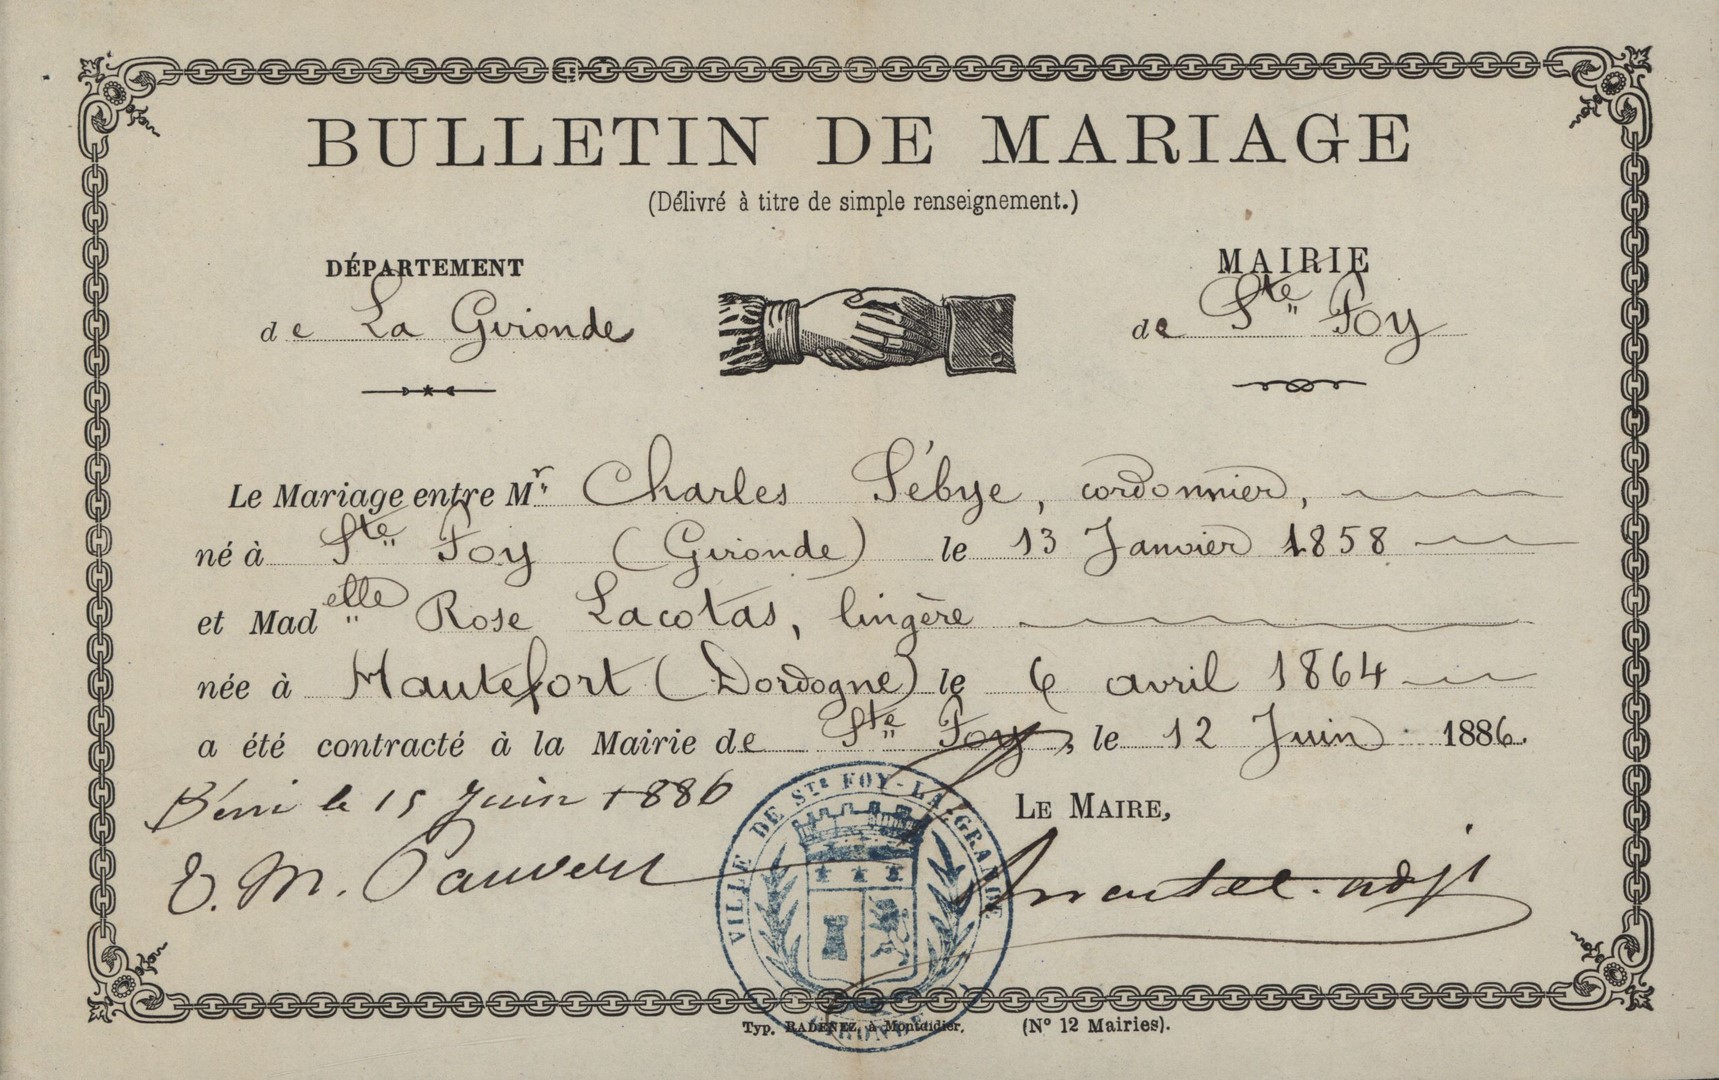 BULLETIN DE MARIAGE
(Délivré à titre de simple renseignement.)
DÉPARTEMENT
de La Gironde
MAIRIE
de Ste Foy
Le Mariage entre Mr Charles Sébye, cordonnier,
né à Ste Foy (Gironde) le 13 Janvier 1858
et Madelle Rose Lacotas, lingère
née à Hautefort (Dordogne) le 6 avril 1864
a été contracté à la Mairie de Ste Foy, le 12 Juin 1886.
Béni le 15 Juin 1886
LE MAIRE,
E. M. Pauvert
adjt
VILLE DE STE FOY-LA-GRANDE
GIRONDE
Typ. RADENEZ, à Montdidier.
(N° 12 Mairies).